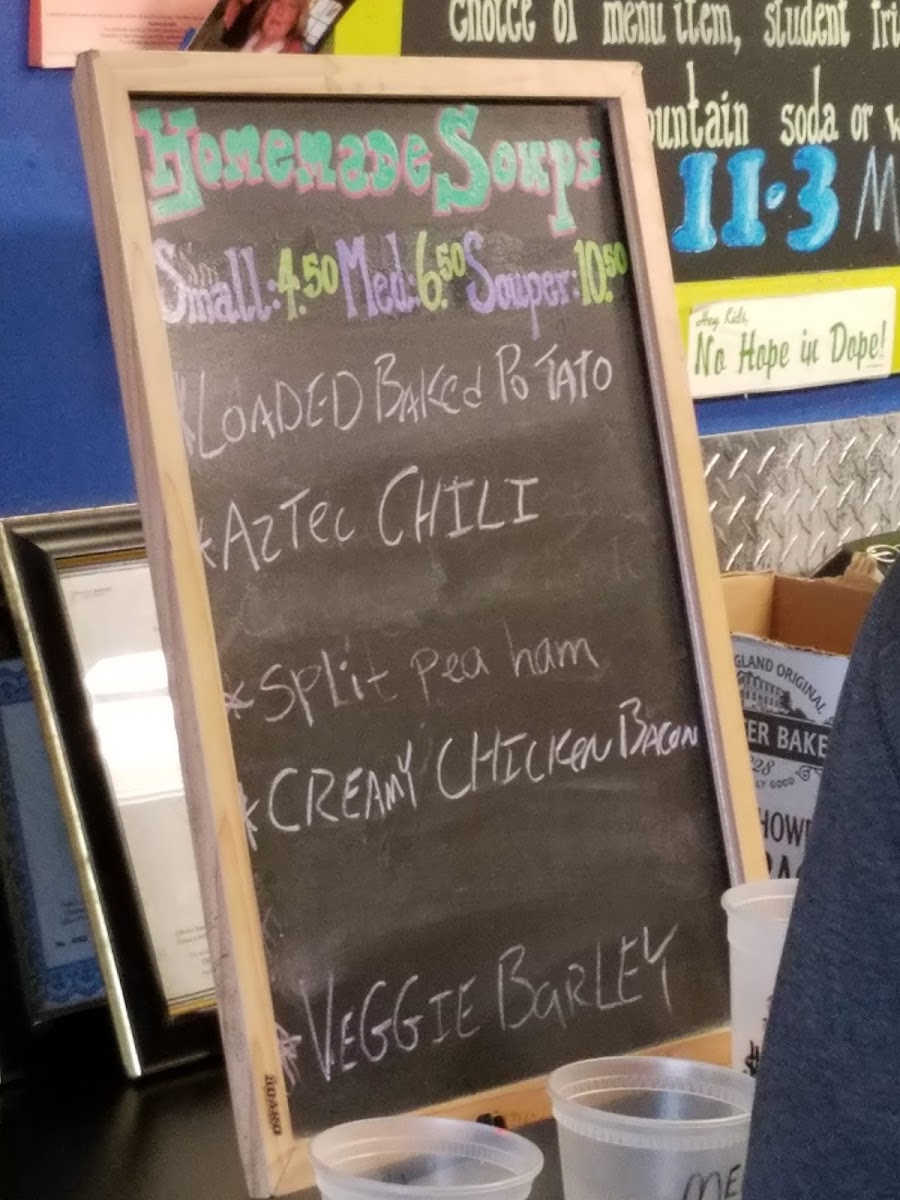 Choice of menu item, student
soda or
11-3
Hey Kids,
No Hope in Dope!
Homemade Soups
Small: 4.50 Med: 6.50 Souper: 10.50
*LOADED BAKed PoTATO
*AzTec CHILI
*SPlit pea ham
*CREAMY CHICKeN BACON
*VEGGIE BarLEY
GLAND ORIGINAL
ER BAKE